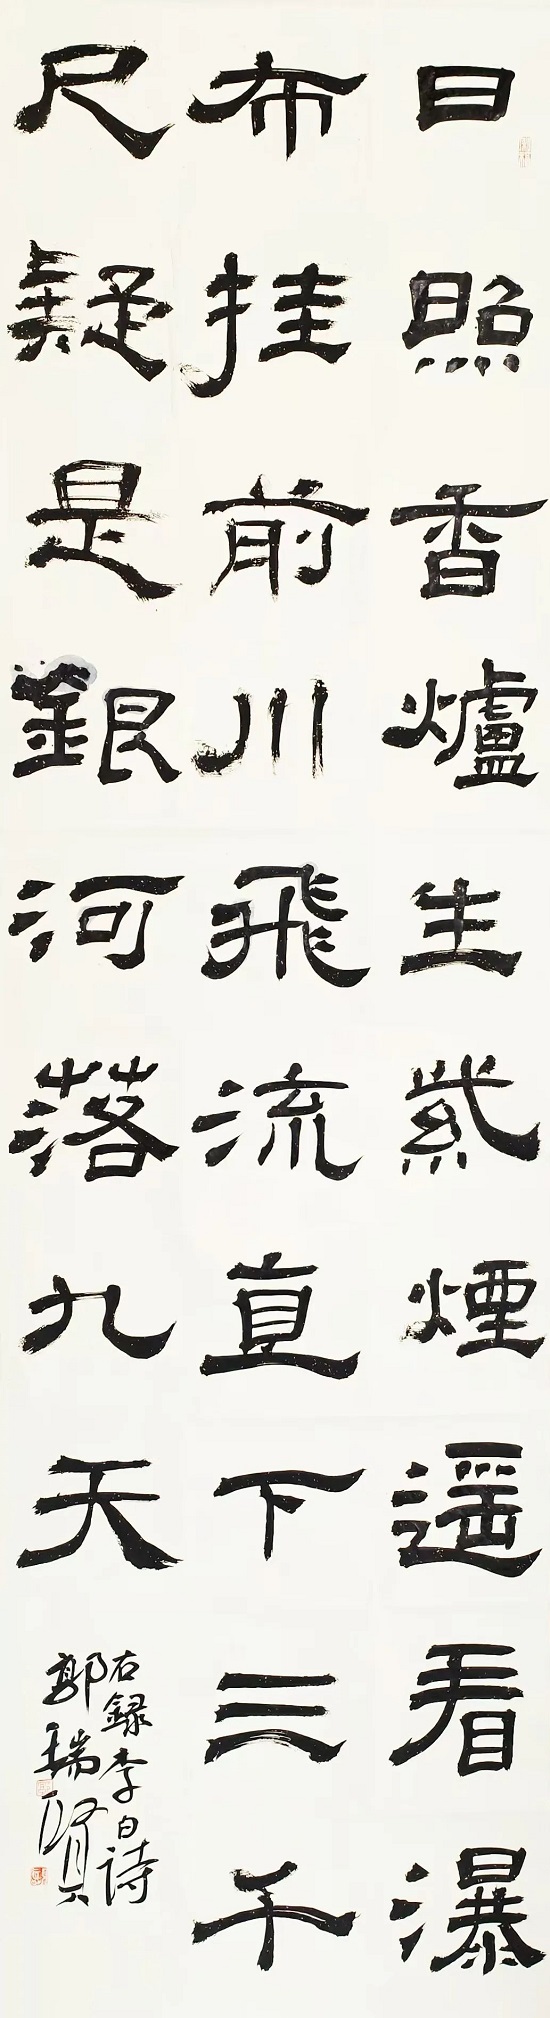 日照香爐生紫煙遥看瀑
布挂前川飛流直下三千
尺疑是銀河落九天
右録李白詩
郭瑞賢